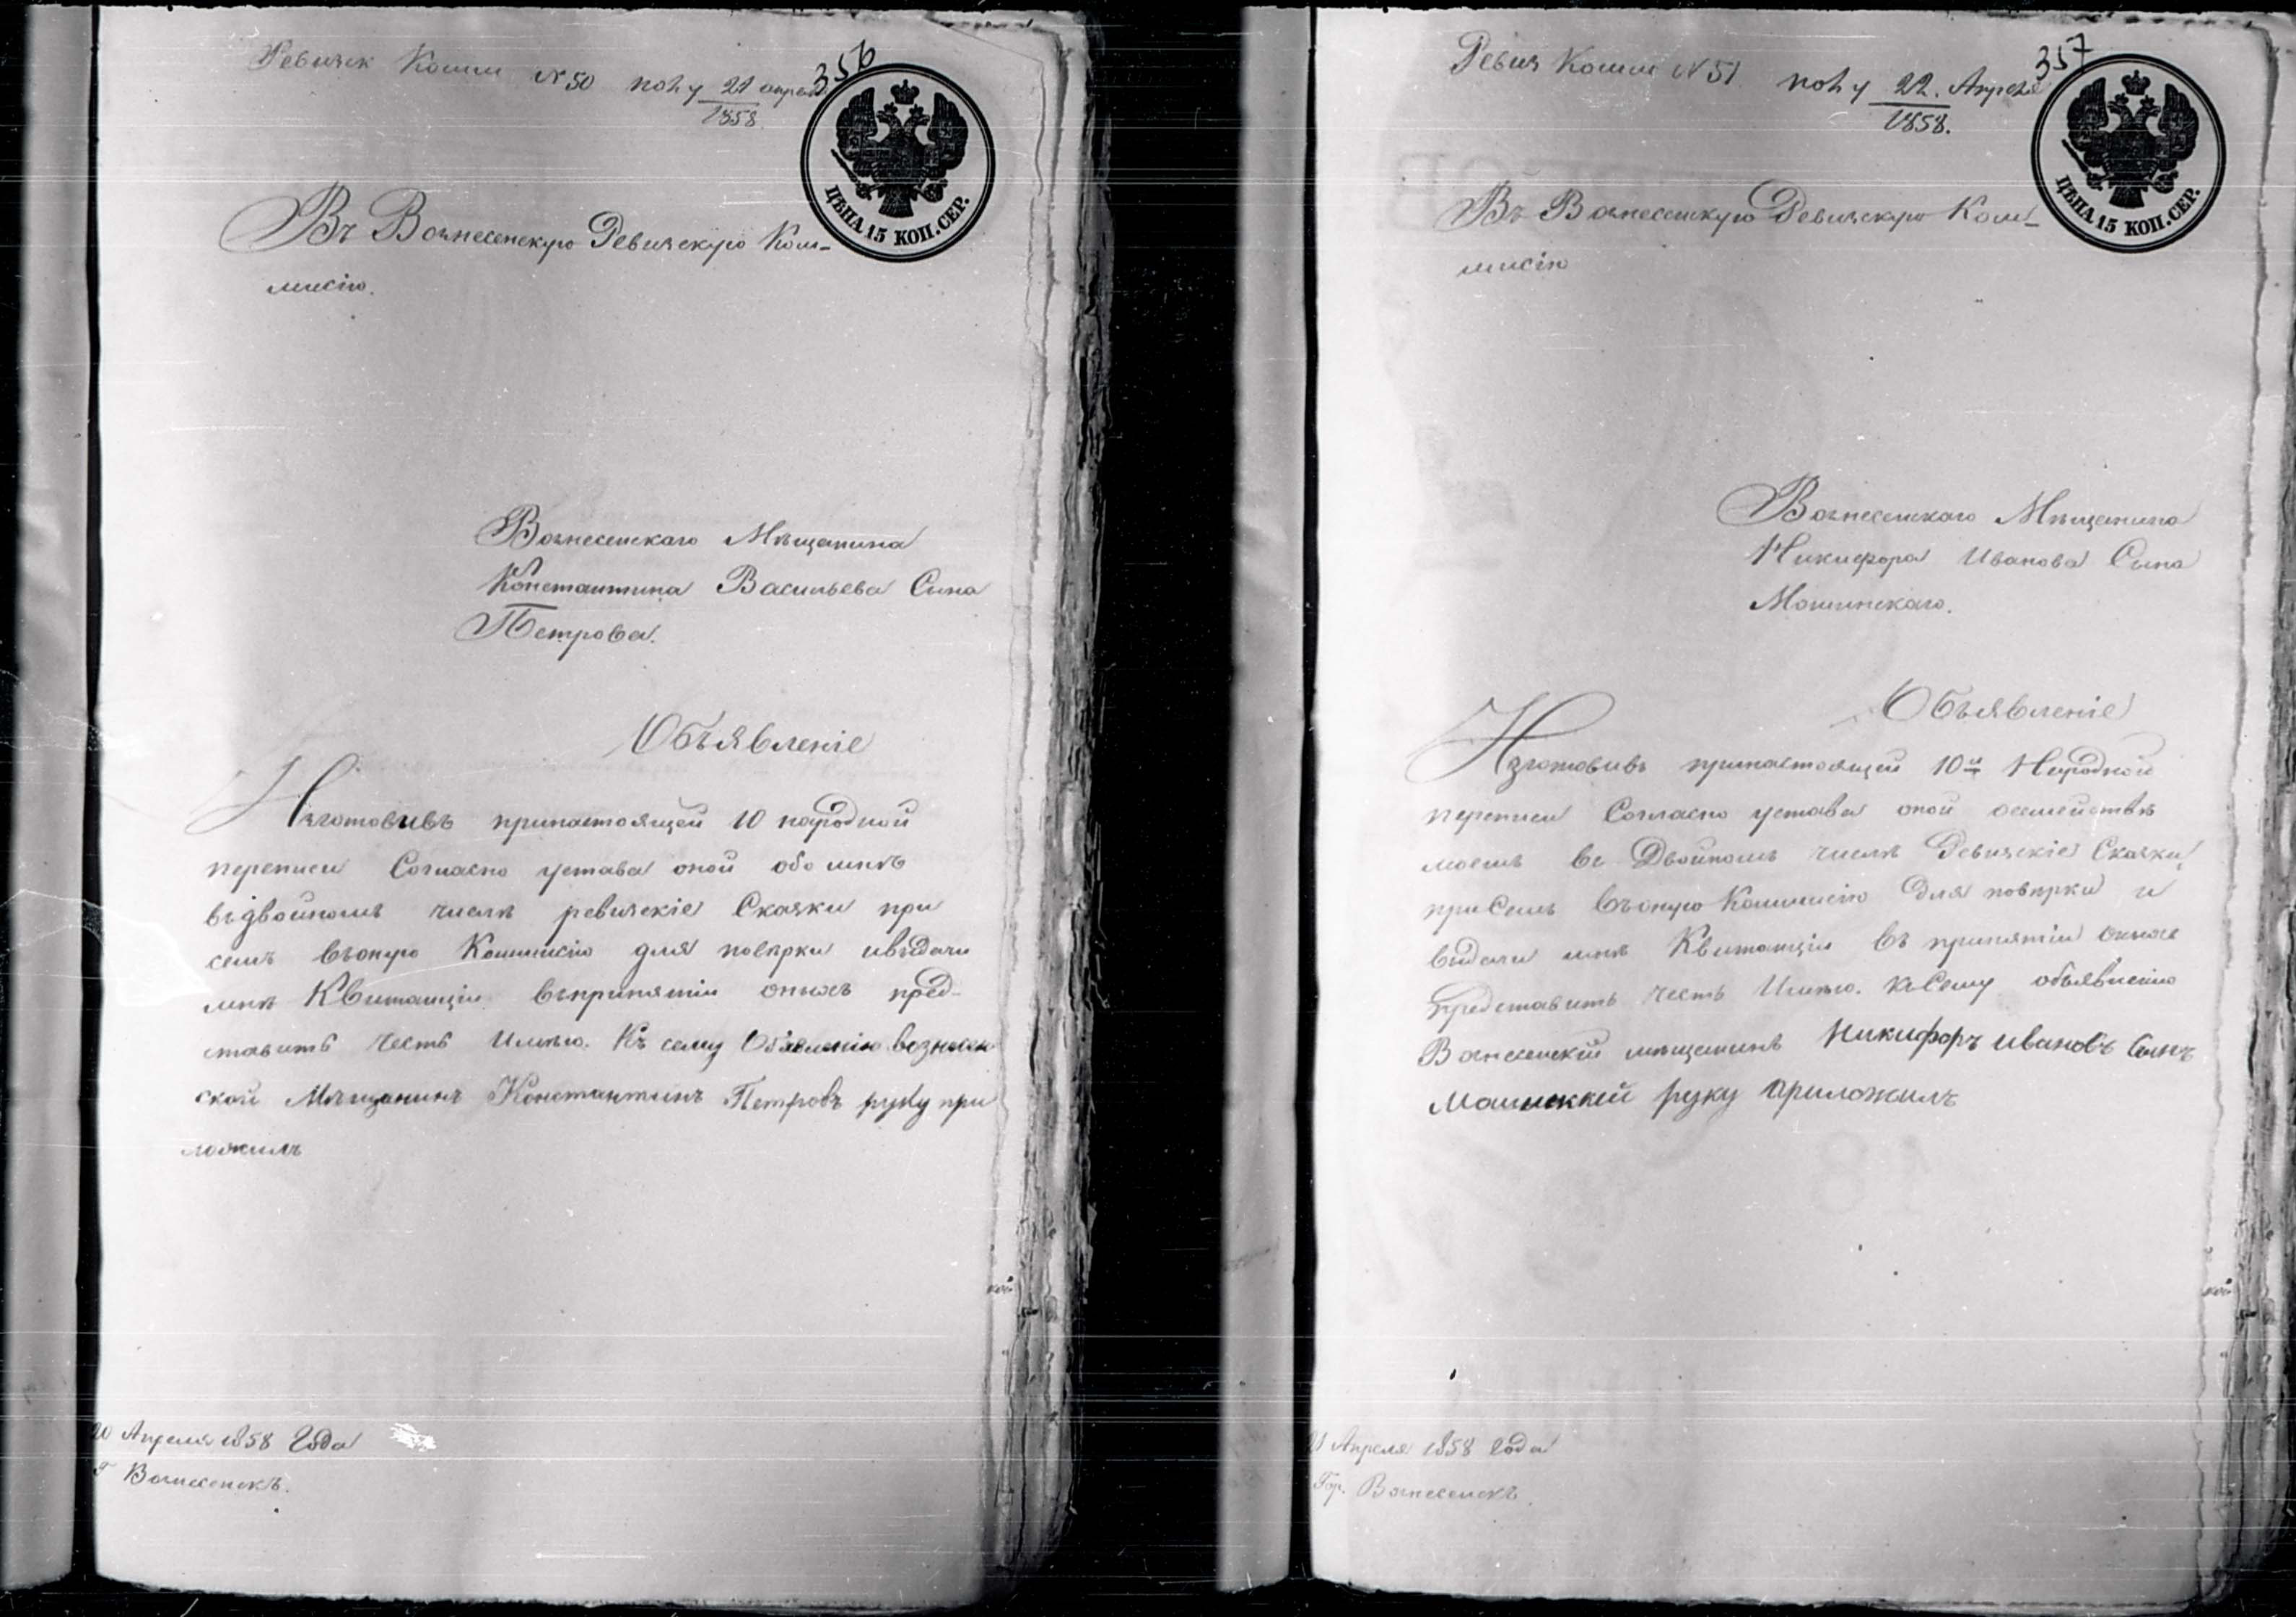 Ревизск Комм N 50 пол у 21 апреля
1858.
356
ЦѢНА 15 КОП. СЕР.
Въ Вознесенскую Ревизскую Ком-
мисію.
Вознесенскаго Мѣщанина
Константина Васильева Сына
Петрова.
Объявленіе
Изготовивъ принастоящей 10 народной
переписи Согласно устава оной обо мнѣ
въдвойномъ числѣ ревизскіе Сказки при
семъ въоную Коммисію для повѣрки ивыдачи
мнѣ Квитанціи въпринятіи оныхъ пред-
ставить честь Имѣю. Къ сему Объявленію вознесен
ской Мѣщанинъ Константинъ Петровъ руку при
ложилъ
20 Апреля 1858 Года
Г Вознесенскъ.
кой
Ревиз Комми N 51 пол у 22. Апреля
1858.
357
ЦѢНА 15 КОП. СЕР.
Въ Вознесенскую Ревизскую Ком-
мисію
Вознесенскаго Мѣщанина
Никифора Иванова Сына
Мошинскаго.
Объявленіе
Изготовивъ принастоящей 10й Народной
переписи Согласно устава оной осемействѣ
моемъ въ Двойномъ числѣ Ревизскіе Сказки,
приСемъ въоную Коммисію Для повѣрки и
выдачи мнѣ Квитанціи въ принятіи оныхъ
представить честь Имѣю. КъСему объявленію
Вознесенскій мѣщанинъ Никифоръ Ивановъ Сынъ
Машинскій руку приложилъ
21 Апреля 1858 Года
Гор. Вознесенскъ.
кой